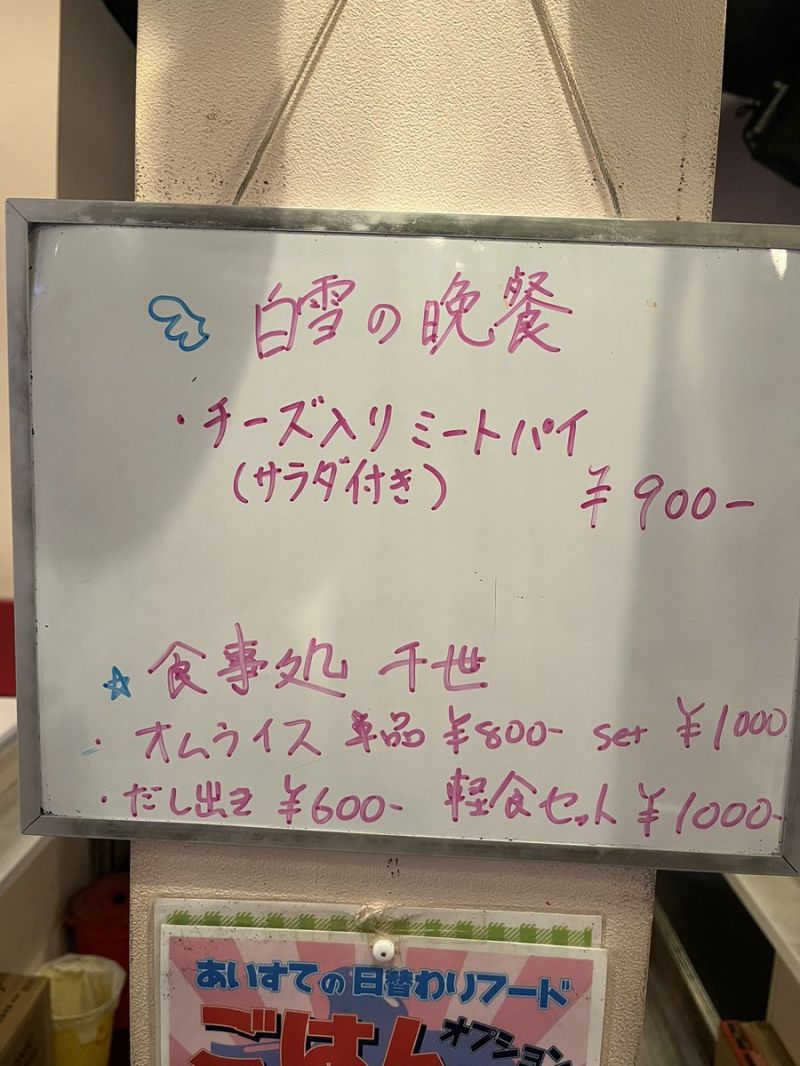 白雪の晩餐
・チーズ入りミートパイ
(サラダ付き)
¥900-
食事処 千世
・オムライス 単品 ¥800- set ¥1000
・だし出き ¥600- 軽食セット ¥1000-
あいすての日替わりフード
ごはん
オプション